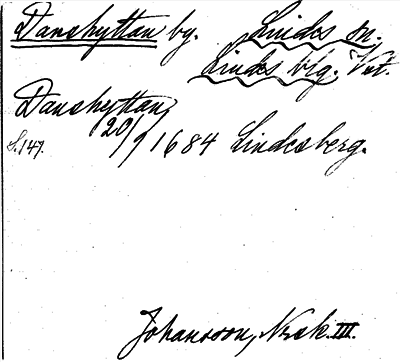 Danshyttan by. Lindes sn.
Lindes blg. Vstt.
Danshyttan,
S. 147. 20/9 1684 Lindesberg.
Johansson, Norsk. III.